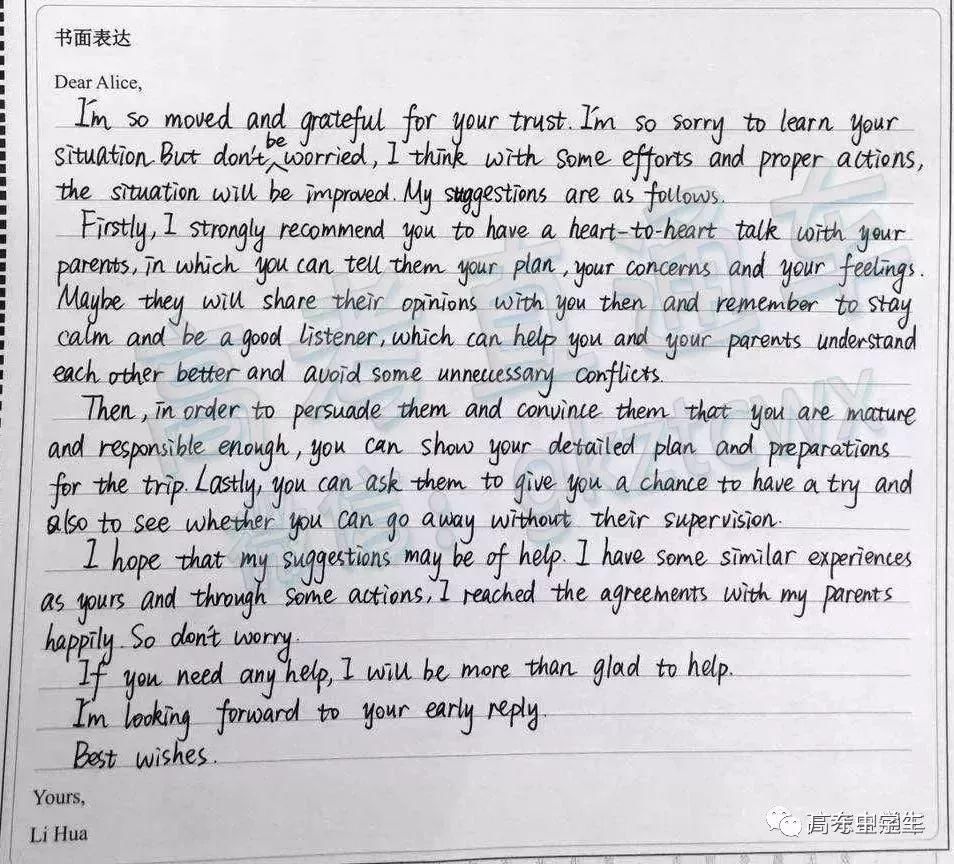 书面表达
Dear Alice,
I'm so moved and grateful for your trust. I'm so sorry to learn your
situation. But don't be worried, I think with some efforts and proper actions,
the situation will be improved. My suggestions are as follows.
Firstly, I strongly recommend you to have a heart-to-heart talk with your
parents, in which you can tell them your plan, your concerns and your feelings.
Maybe they will share their opinions with you then and remember to stay
calm and be a good listener, which can help you and your parents understand
each other better and avoid some unnecessary conflicts.
Then, in order to persuade them and convince them that you are mature
and responsible enough, you can show your detailed plan and preparations
for the trip. Lastly, you can ask them to give you a chance to have a try and
also to see whether you can go away without their supervision.
I hope that my suggestions may be of help. I have some similar experiences
as yours and through some actions, I reached the agreements with my parents
happily. So don't worry.
If you need any help, I will be more than glad to help.
I'm looking forward to your early reply.
Best wishes.
Yours,
Li Hua
高考直通车
微信：gkztcwx